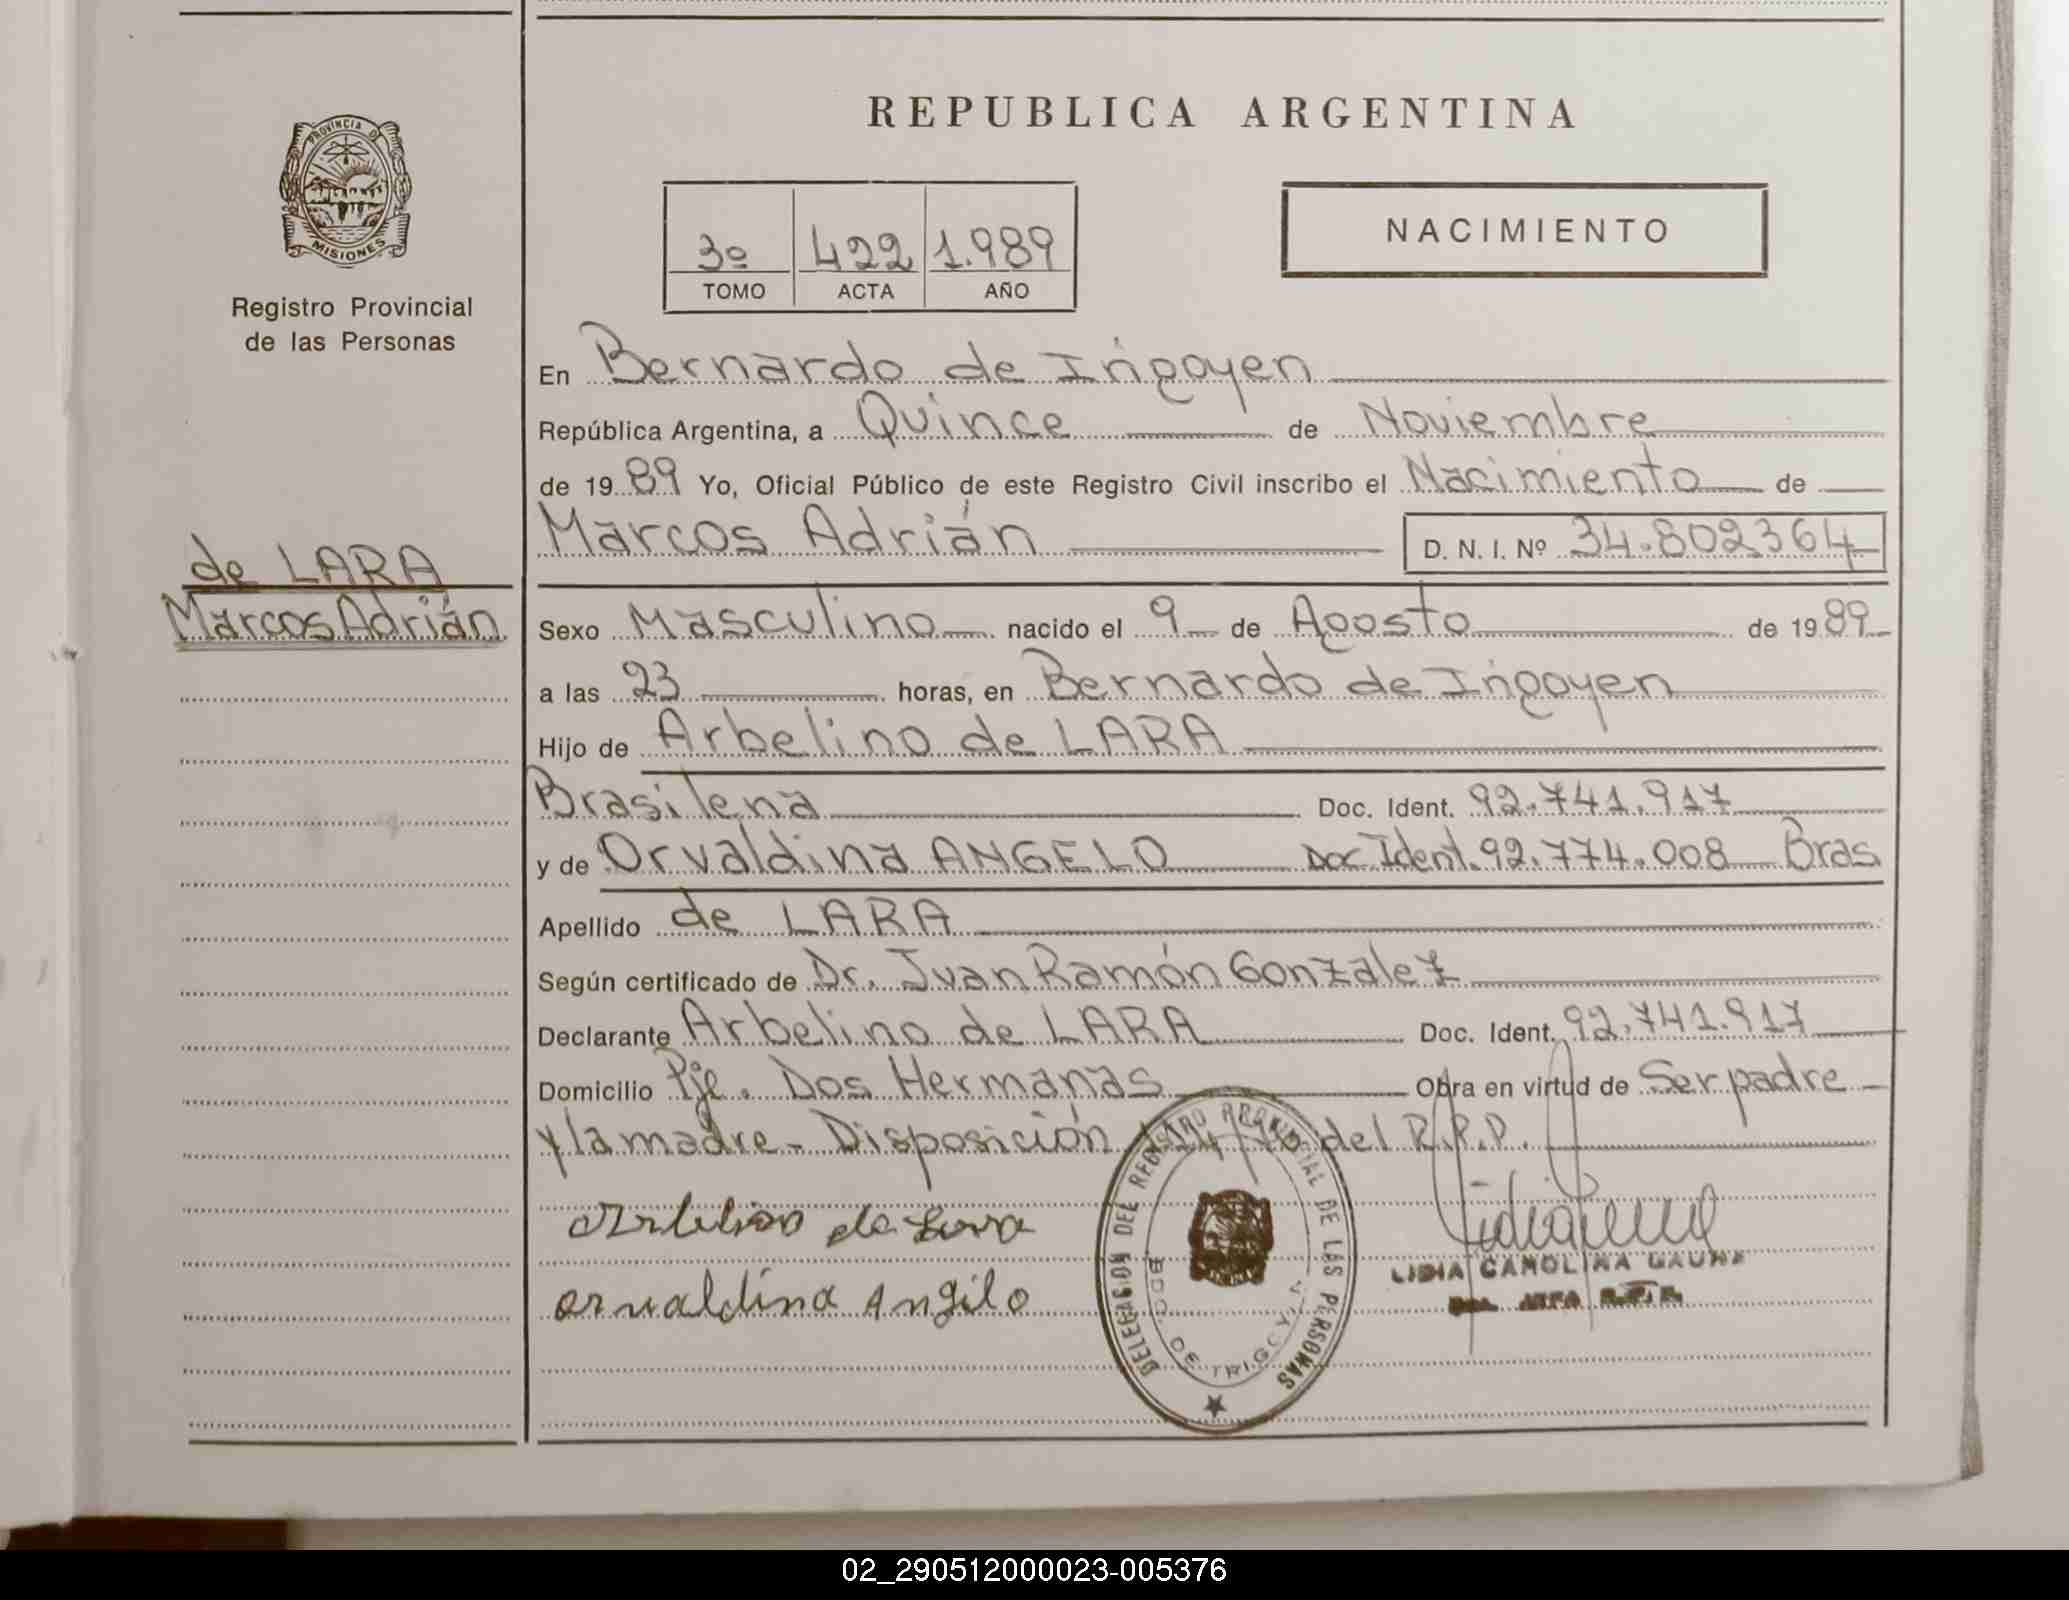 REPUBLICA ARGENTINA
PROVINCIA D
MISIONES
Registro Provincial
de las Personas
NACIMIENTO
3º 422 1.989
TOMO ACTA AÑO
En Bernardo de Irigoyen
República Argentina, a Quince de Noviembre
de 1989 Yo, Oficial Público de este Registro Civil inscribo el Nacimiento de
Marcos Adrián D. N. I. Nº 34.802364
de LARA
Marcos Adrián
Sexo Masculino nacido el 9 de Agosto de 1989
a las 23 horas, en Bernardo de Irigoyen
Hijo de Arbelino de LARA
Brasilena Doc. Ident. 92.741.917
y de Orvaldina ANGELO Doc Ident. 92.774.008 Bras
Apellido de LARA
Según certificado de Dr. Juan Ramón Gonzalez
Declarante Arbelino de LARA Doc. Ident. 92.741.917
Domicilio Pje. Dos Hermanas Obra en virtud de Ser padre
y la madre - Disposición del R.P.P.
Arbelino de Lara
orvaldina Angilo
DELEGACION DEL REGISTRO PROVINCIAL DE LAS PERSONAS
BDO. DE IRIGOYEN
LIDIA CAROLINA GAUNA
02_290512000023-005376